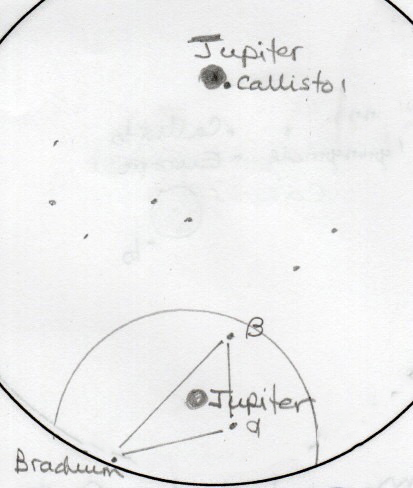 Jupiter
callisto
B
Jupiter
Brachium